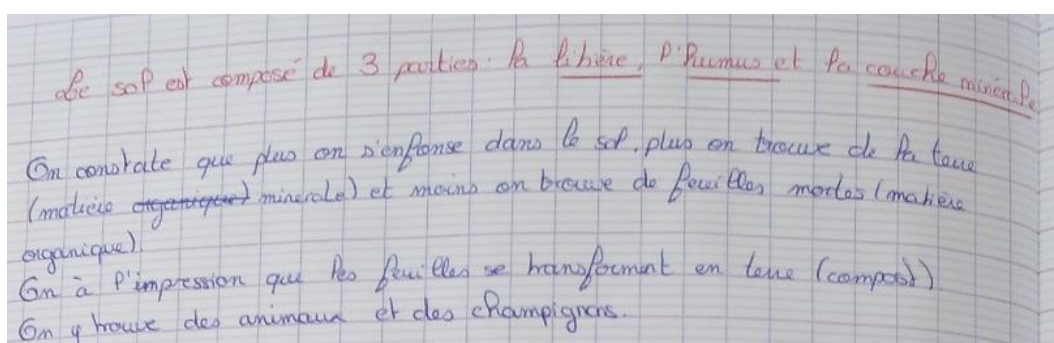 Le sol est composé de 3 parties: la litière, l'humus et la couche minérale
On constate que plus on s'enfonse dans le sol, plus on trouve de la terre
(matière organique) minerale) et moins on trouve de feuilles mortes (matière
organique).
On à l'impression que les feuilles se transforment en terre (compost)).
On y trouve des animaux et des champignons.